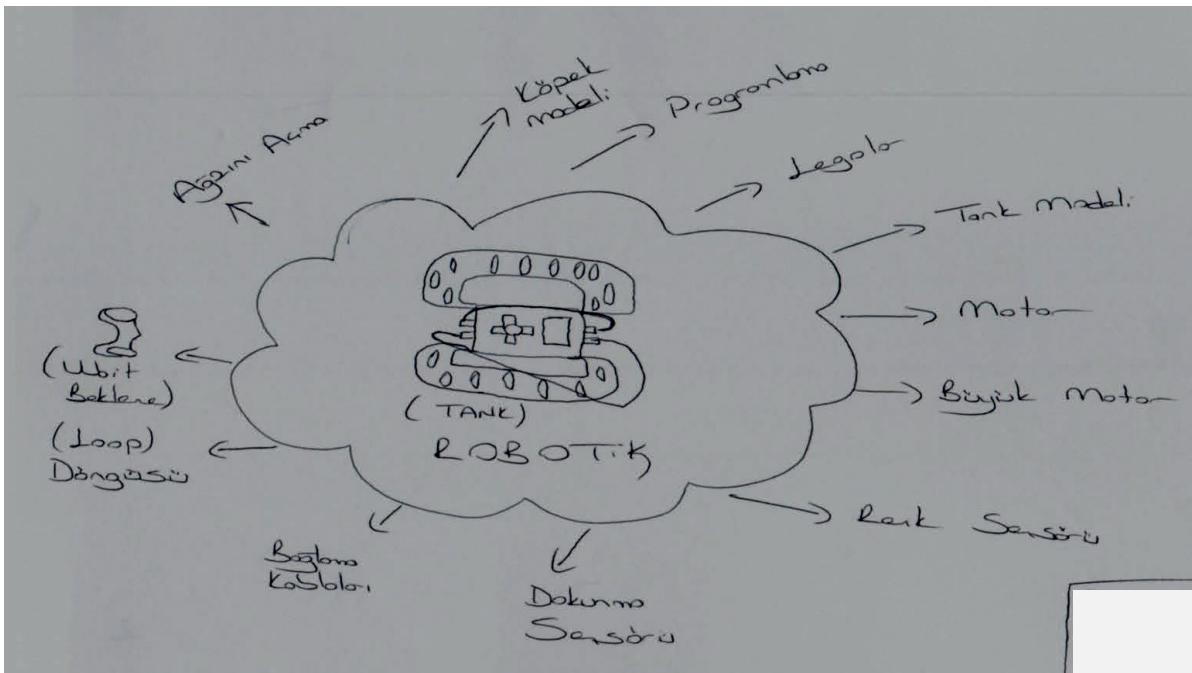 Köpek
modeli
Programlama
Legolar
Ağzını Açma
Tank Modeli
Motor
Büyük Motor
Renk Sensörü
Dokunma
Sensörü
Bağlama
Kabloları
(Loop)
Döngüsü
Bekleme)
(TANK)
ROBOTİK